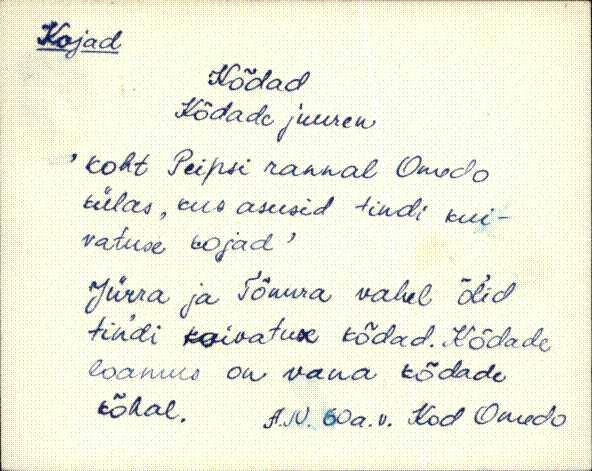 Kojad
Kõdad
Kõdade juuren
'koht Peipsi rannal Omedo
külas, kus asusid tindi kui-
vatuse kojad'
Jürra ja Tõnura vahel õĺid
tińdi kuivatuse kõdad. Kõdade
loamus on vana kõdade
kõhal.
A.N. 60 a.v. Kod Omedo